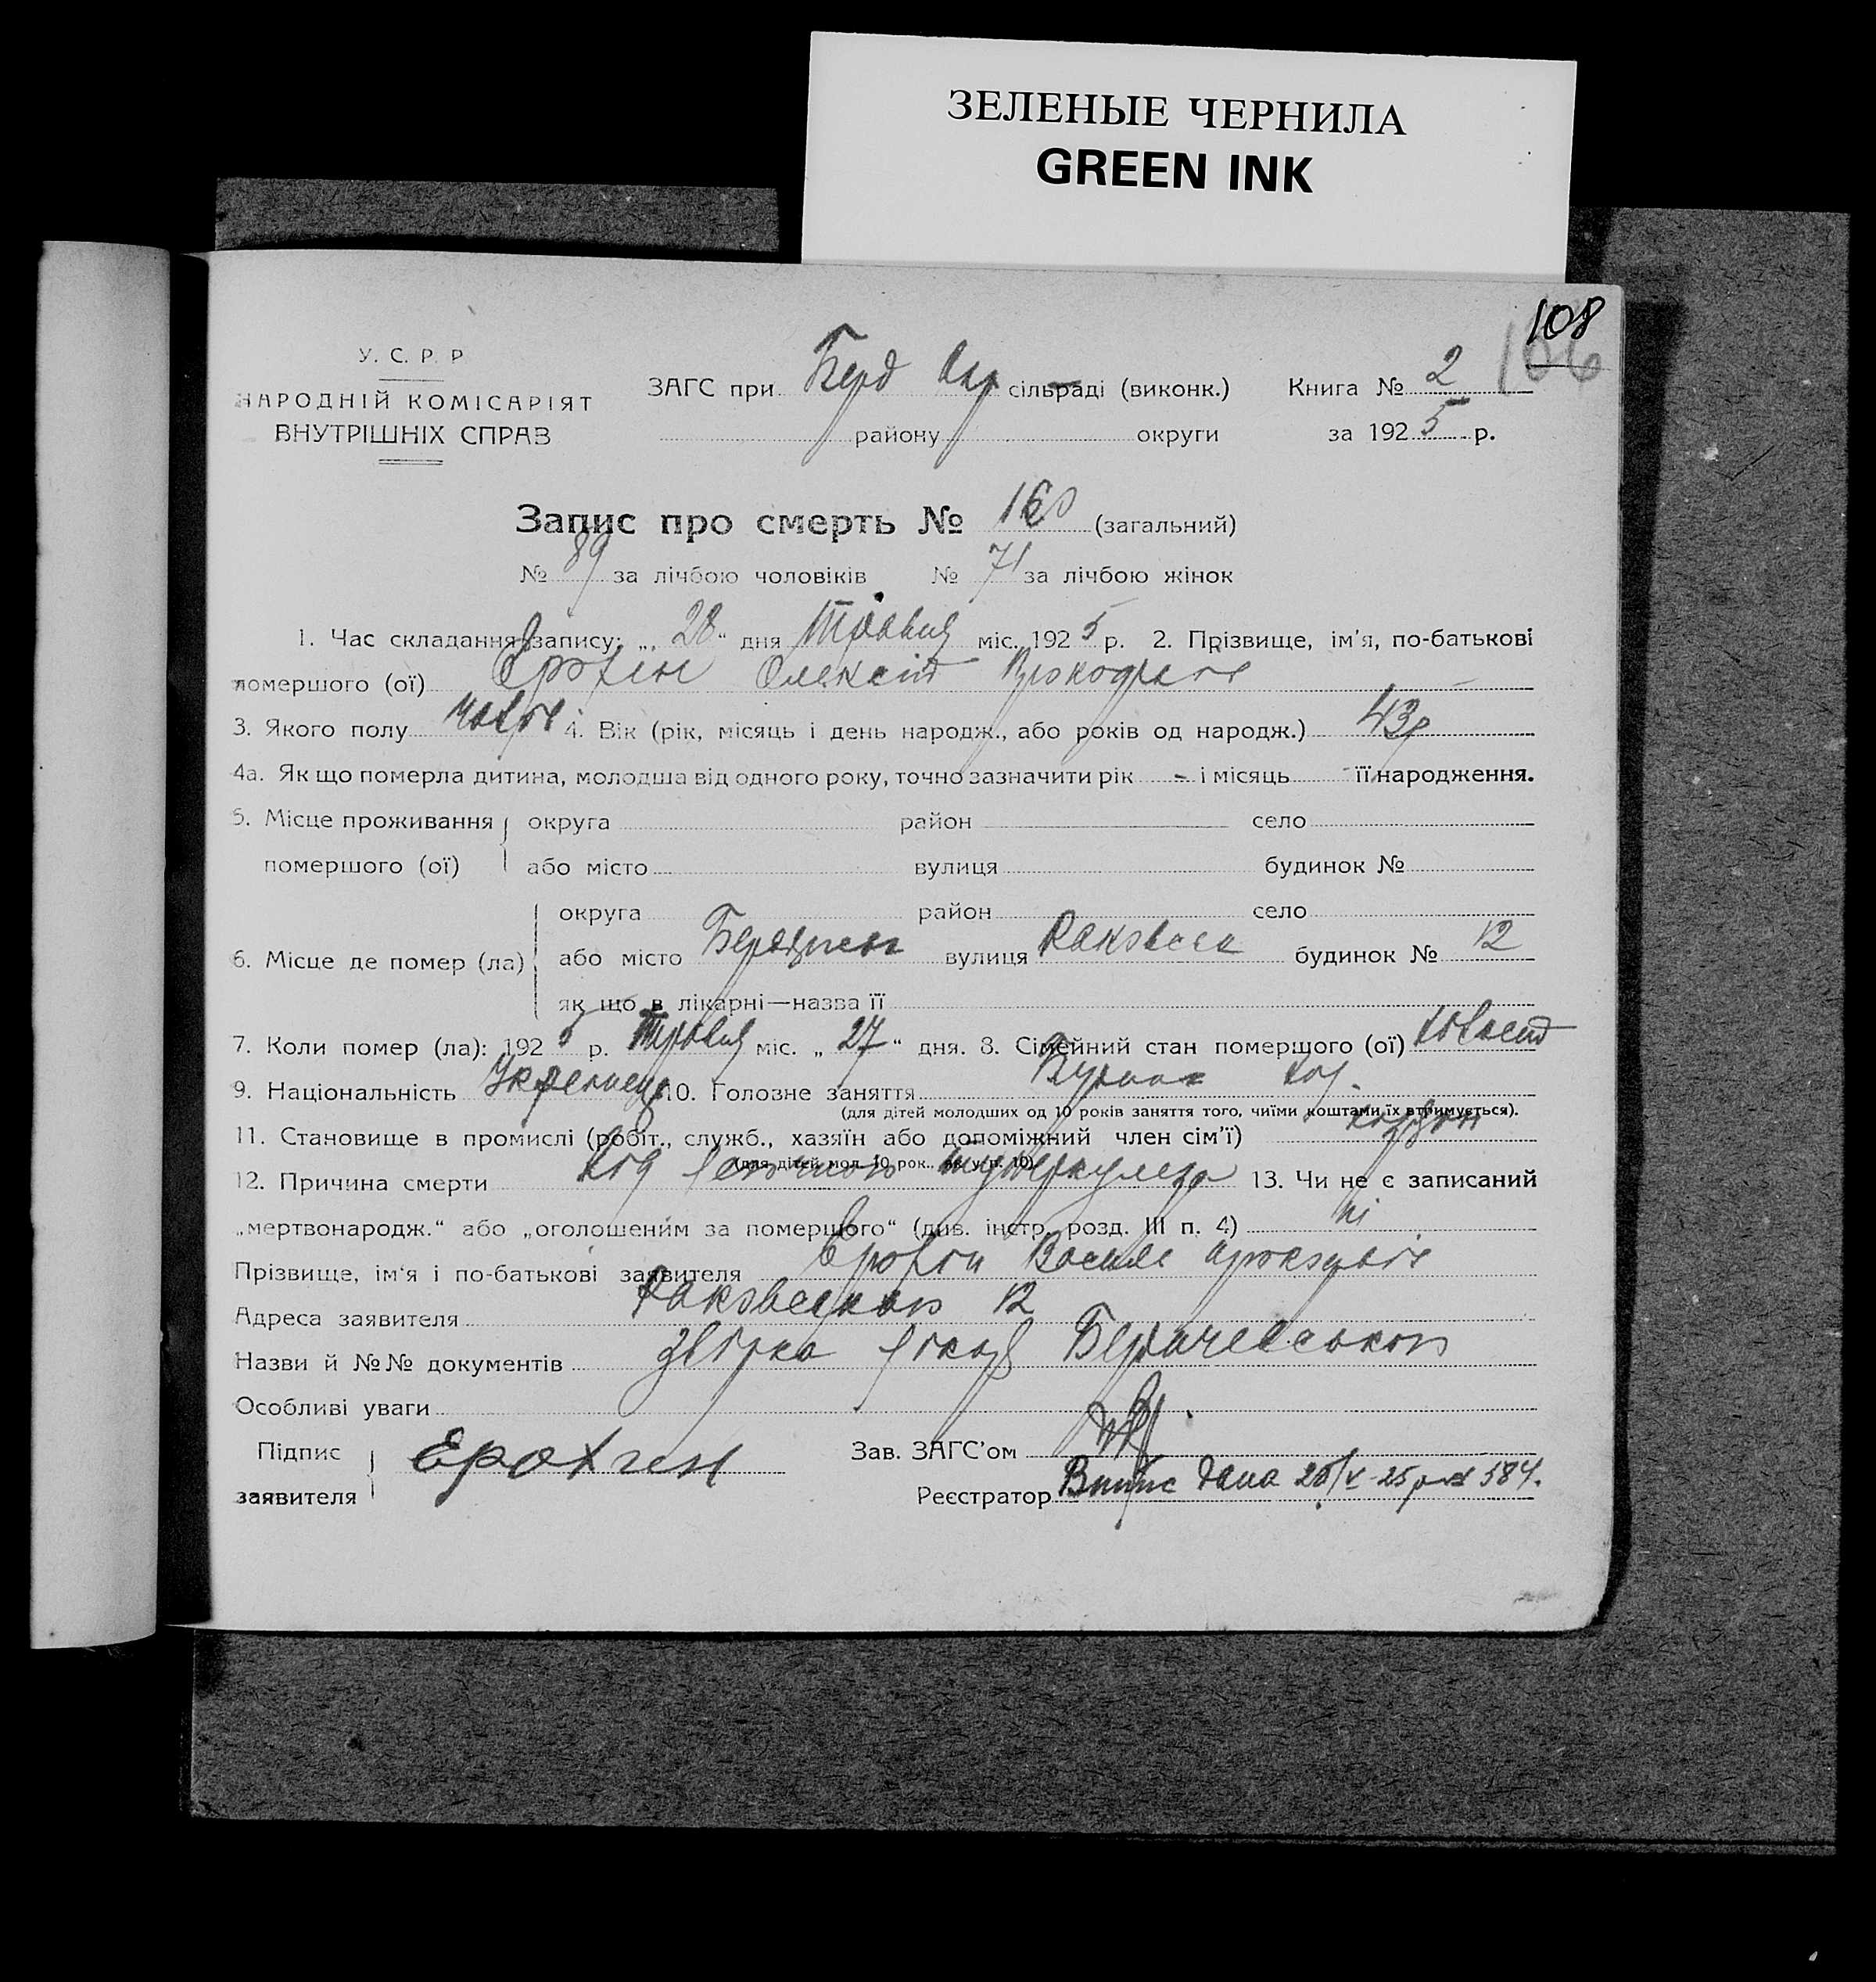 ЗЕЛЕНЫЕ ЧЕРНИЛА
GREEN INK
108
106
У. С. Р. Р
НАРОДНІЙ КОМІСАРІЯТ
ВНУТРІШНІХ СПРАВ
ЗАГС при Берд Окр сільраді (виконк.) Книга № 2
району округи за 1925 р.
Запис про смерть № 160 (загальний)
№ 89 за лічбою чоловіків № 71 за лічбою жінок
1. Час складання запису: „28“ дня Травня міс. 1925 р. 2. Прізвище, ім'я, по-батькові
помершого (ої) Єрохін Олексій
3. Якого полу 4. Вік (рік, місяць і день народж., або років од народж.) 43р
4а. Як що померла дитина, молодша від одного року, точно зазначити рік - і місяць - її народження.
5. Місце проживання округа район село
помершого (ої) або місто вулиця будинок №
округа район село
6. Місце де помер (ла) або місто вулиця будинок № 12
як що в лікарні—назва її
7. Коли помер (ла): 1925 р. Травня міс. „27“ дня. 8. Сімейний стан помершого (ої)
9. Національність Українець 10. Головне заняття
(для дітей молодших од 10 років заняття того, чиїми коштами їх втримується).
11. Становище в промислі (робіт., служб., хазяїн або допоміжний член сім'ї)
(для дітей мол. 10 рок., як у п. 10)
12. Причина смерти туберкульоза 13. Чи не є записаний
„мертвонародж.“ або „оголошеним за помершого“ (див. інстр. розд. III п. 4) ні
Прізвище, ім'я і по-батькові заявителя Єрохін Василь
Адреса заявителя 12
Назви й №№ документів
Особливі уваги
Підпис Ерохин Зав. ЗАГС'ом
заявителя Реєстратор Випис дана 28/V-25 р № 584.